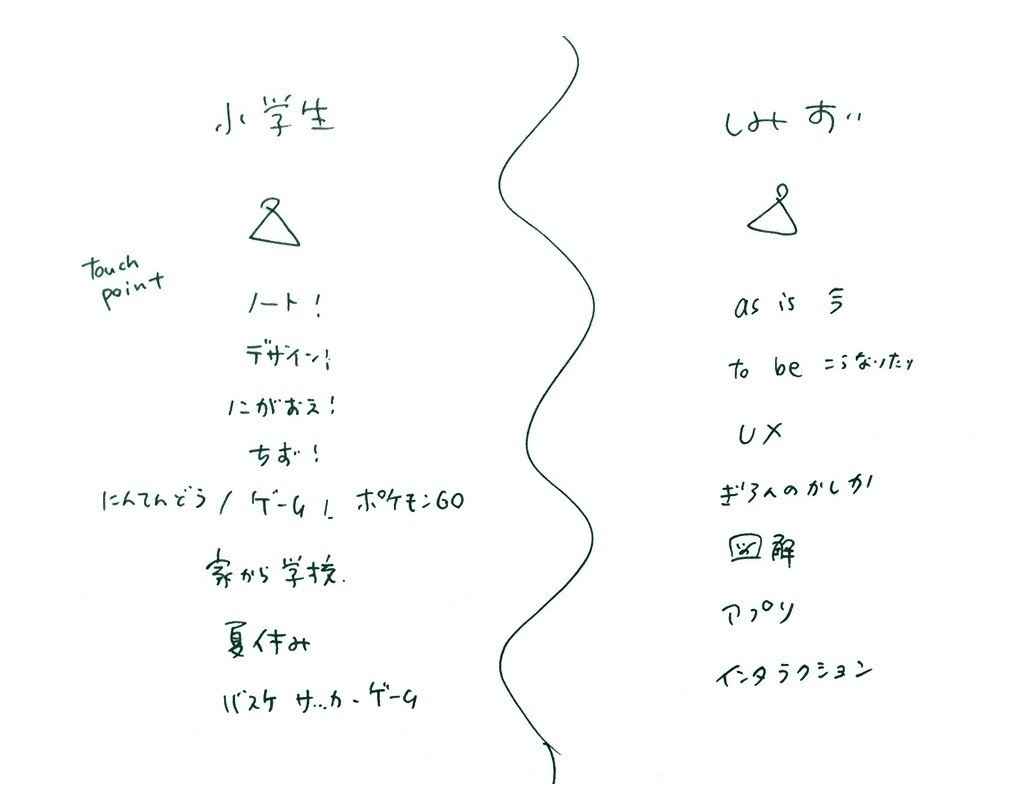 小学生
touch
point
ノート!
デザイン!
にがおえ!
ちず!
にんてんどう / ゲーム! ポケモンGO
家から学校.
夏休み
バスケ サッカー ゲーム
しみず
as is 今
to be こうなりたい
UX
ぎろんのかしか
図解
アプリ
インタラクション